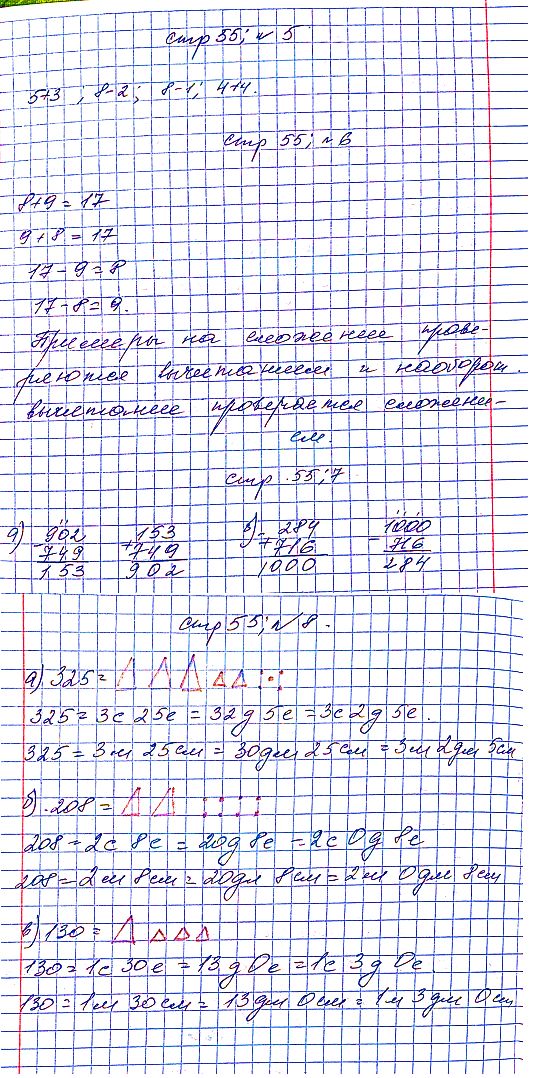 стр 55; № 5
5+3 ; 8-2; 8-1; 4+4.
стр 55; № 6
8+9 = 17
9+8 = 17
17-9 = 8
17-8 = 9.
Примеры на сложение прове-
ряются вычитанием и наоборот.
вычитание проверяется сложени-
ем.
стр. 55; 7
а) 902 153 в) 284 1000
- 749 + 749 + 716 - 716
153 902 1000 284
стр 55; № 8.
а) 325 =
325 = 3с 25е = 32д 5е = 3с 2д 5е.
325 = 3м 25см = 30дм 25см = 3м 2дм 5см
б) 208 =
208 = 2с 8е = 20д 8е = 2с 0д 8е
208 = 2м 8см = 20дм 8см = 2м 0дм 8см
в) 130 =
130 = 1с 30е = 13д 0е = 1с 3д 0е
130 = 1м 30см = 13дм 0см = 1м 3дм 0см